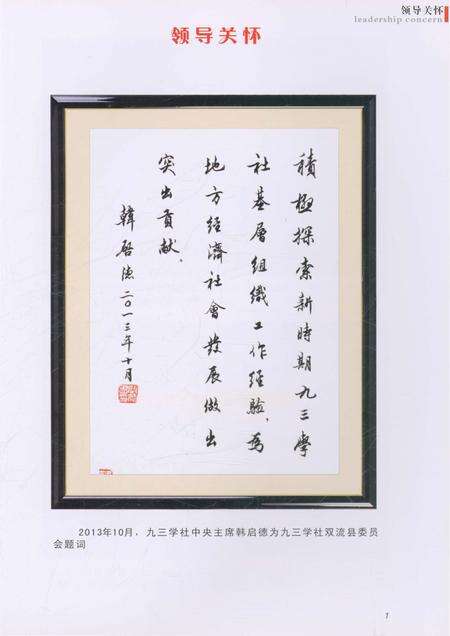 领导关怀
leadership concern
领导关怀
積極探索新時期九三學
社基層組織工作經驗，為
地方經濟社會發展做出
突出貢獻。
韓啓德二〇一三年十月
2013年10月，九三学社中央主席韩启德为九三学社双流县委员
会题词
1